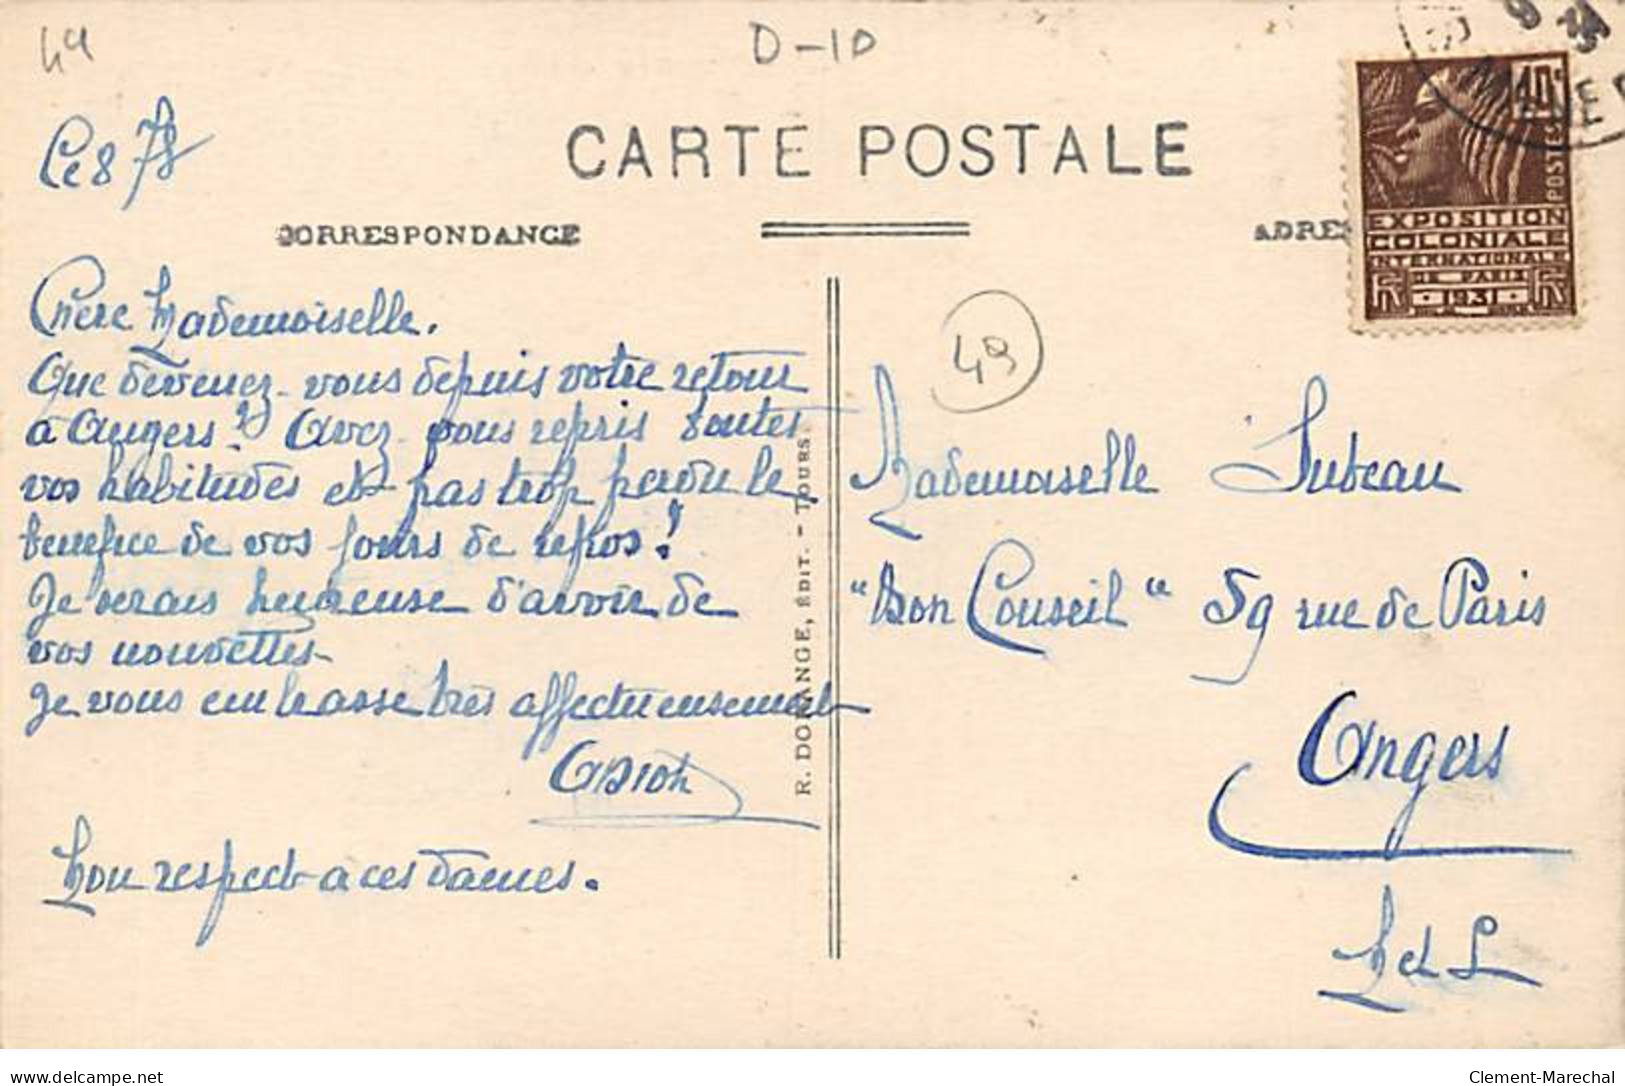 49
D-10
Ce 8 7/8
CARTE POSTALE
CORRESPONDANCE
ADRES
40c
POSTES
EXPOSITION
COLONIALE
INTERNATIONALE
DE PARIS
1931
RF RF
Chère Mademoiselle.
Que devenez-vous depuis votre retour
à Angers? Avez-vous repris toutes
vos habitudes et pas trop perdu le
benefice de vos jours de repos!
Je serais heureuse d'avoir de
vos nouvelles-
Je vous embrasse très affectueusement
Mon respect à ces dames.
R. DORANGE, ÉDIT. - TOURS.
49
Mademoiselle Jubeau
"Bon Conseil" 59 rue de Paris
Angers
M et L
delcampe.net
Clement-Marechal